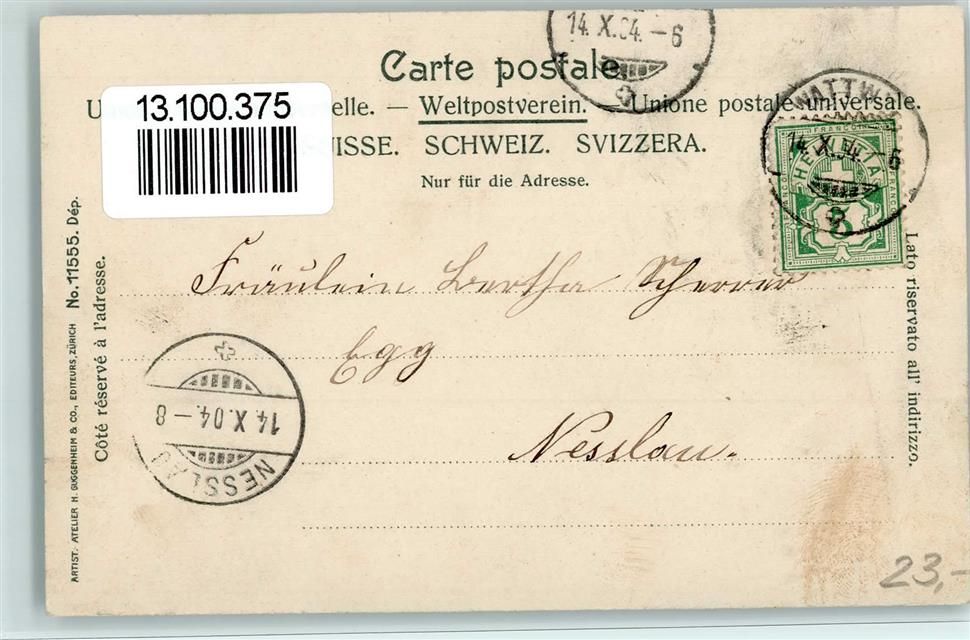 14.X.04.-6
Carte postale
13.100.375
elle. — Weltpostverein. — Unione postale universale.
UISSE. SCHWEIZ. SVIZZERA.
Nur für die Adresse.
WATTW
14.X.04. 6
FRANCO
HELVETIA
5
Fräulein Bertha Scherrer
Egg
Nesslau.
14.X.04.-8
NESSLAU
Côté réservé à l'adresse.
No. 11555. Dép.
ARTIST. ATELIER H. GUGGENHEIM & CO., EDITEURS, ZÜRICH
Lato riservato all' indirizzo.
23,-